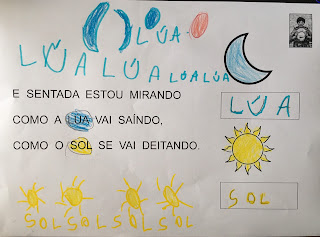 LÚA.
LÚA LÚA LÚA LÚA
E SENTADA ESTOU MIRANDO
LÚA
COMO A LÚA VAI SAÍNDO,
COMO O SOL SE VAI DEITANDO.
SOL
SOL SOL SOL SOL